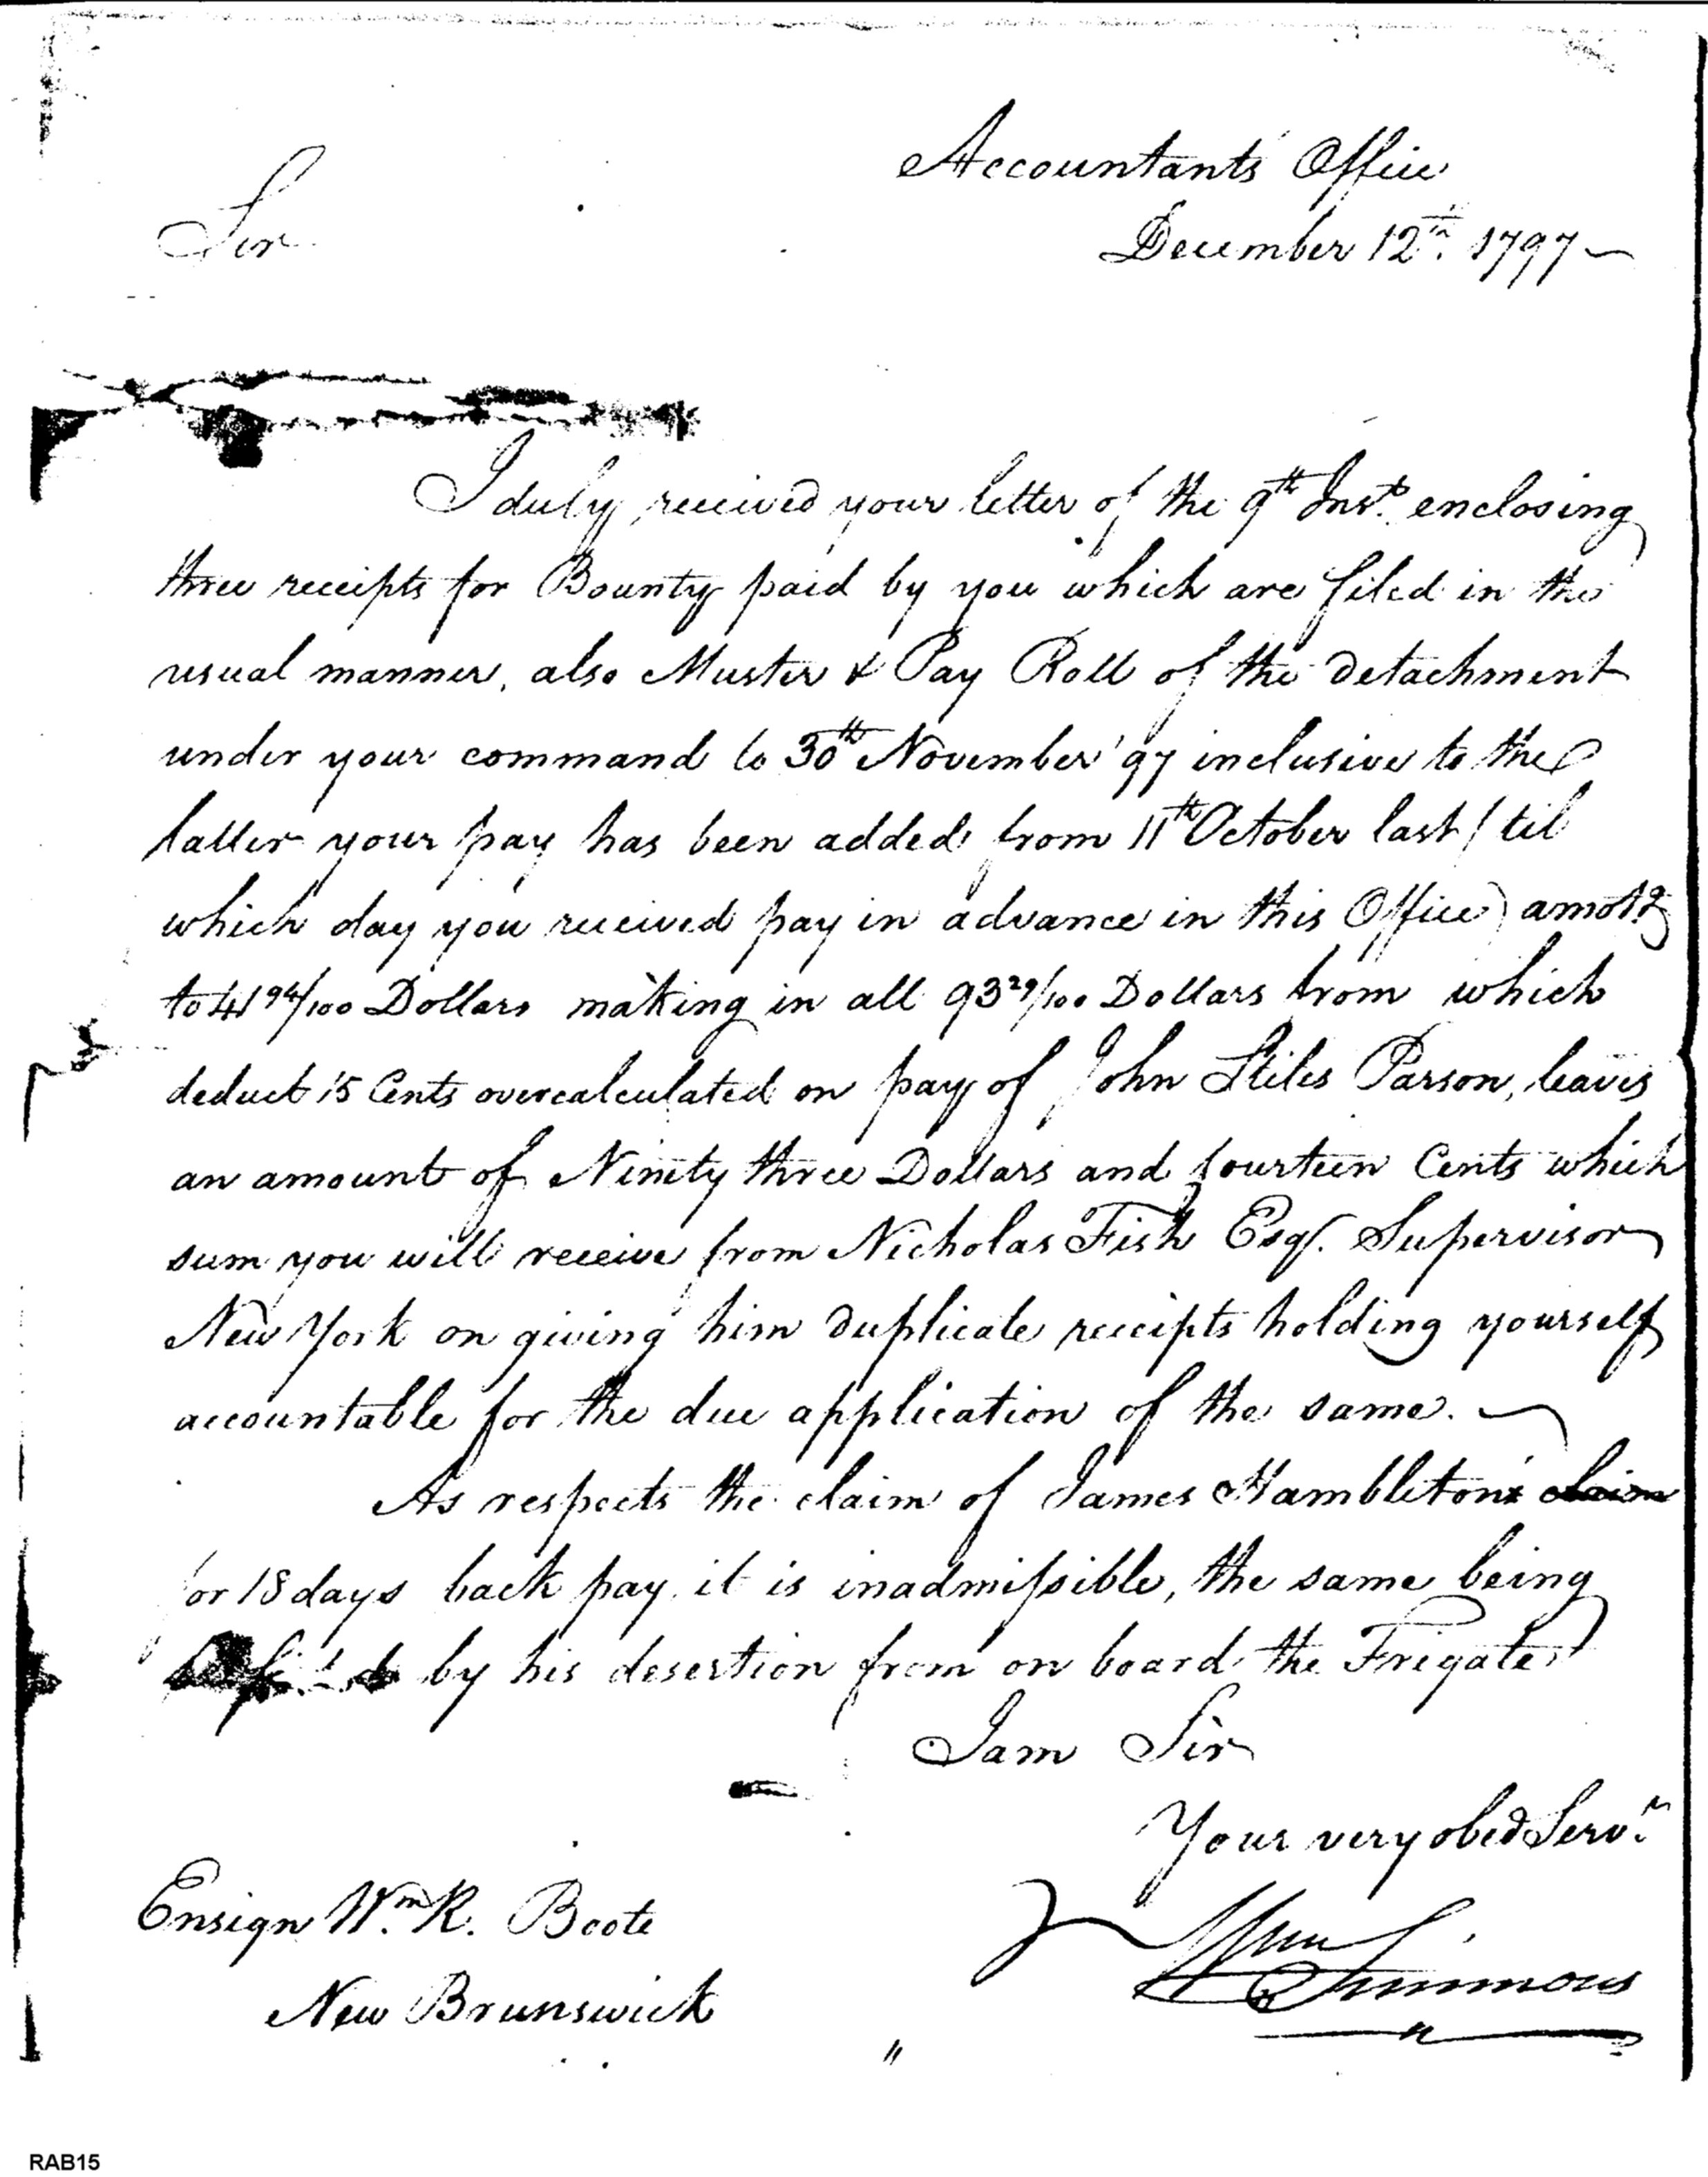 Accountants Office
Sir
December 12th. 1797
I duly received your letter of the 9th Inst. enclosing
three receipts for Bounty paid by you which are filed in the
usual manner, also Muster & Pay Roll of the detachment
under your command to 30th November '97 inclusive to the
latter your pay has been added from 11th October last (til
which day you received pay in advance in this Office) amotg
to 41 94/100 Dollars making in all 93 29/100 Dollars from which
deduct 15 Cents overcalculated on pay of John Stiles Parson, leaves
an amount of Ninety three Dollars and fourteen Cents which
sum you will receive from Nicholas Fish Esqr. Supervisor
New York on giving him duplicate receipts holding yourself
accountable for the due application of the same.
As respects the claim of James Hambleton's claim
for 18 days back pay it is inadmissible, the same being
by his desertion from on board the Frigate.
I am Sir
Your very obed Servt.
Ensign Wm. R. Boote
Wm Simmons
New Brunswick
RAB15